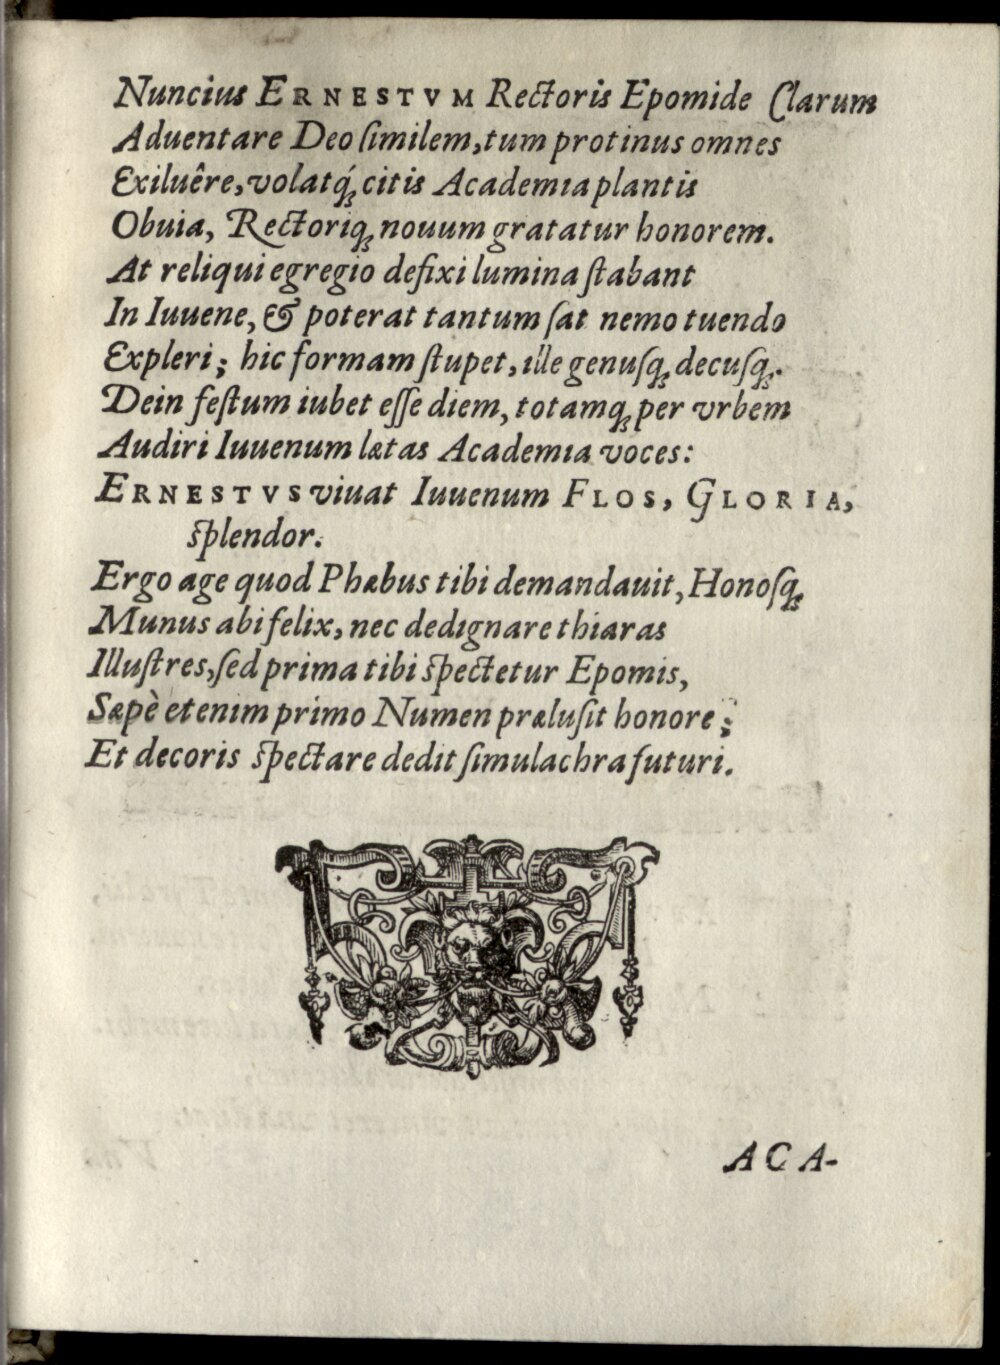 Nuncius ERNESTVM Rectoris Epomide Clarum
Aduentare Deo ſimilem, tum protinus omnes
Exiluêre, volatq́; citis Academia plantis
Obuia, Rectoriq; nouum gratatur honorem.
At reliqui egregio defixi lumina ſtabant
In Iuuene, & poterat tantum ſat nemo tuendo
Expleri; hic formam ſtupet, ille genuſq; decuſq;.
Dein feſtum iubet eſſe diem, totamq; per vrbem
Audiri Iuuenum lætas Academia voces:
ERNESTVS viuat Iuuenum FLOS, GLORIA,
ſplendor.
Ergo age quod Phæbus tibi demandauit, Honoſq;
Munus abi felix, nec dedignare thiaras
Illuſtres, ſed prima tibi ſpectetur Epomis,
Sæpè etenim primo Numen præluſit honore;
Et decoris ſpectare dedit ſimulachra futuri.
ACA-